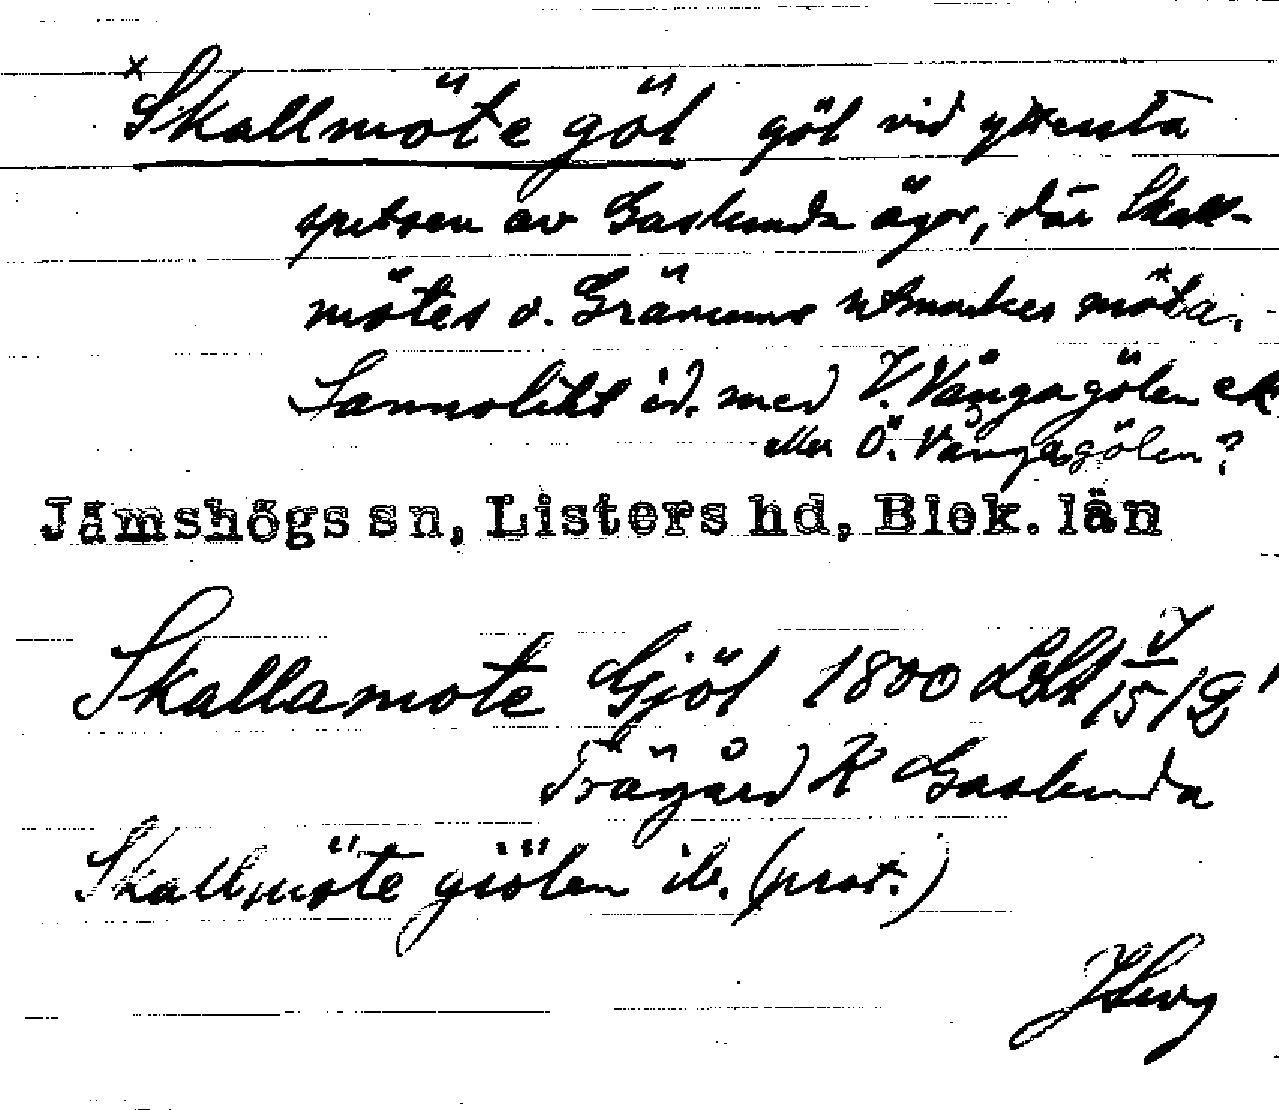 x Skallmöte göl göl vid yttersta
spetsen av Gaslunda ägor, där Skall-
mötes o. Gränums utmarker möta.
Sannolikt id. med V. Vångagölen ek
eller Ö. Vångagölen?
Jämshögs sn, Listers hd, Blek. län
Skallamote Gjöl 1800 LSA
Trägård K Gaslunda
Skallmöte giölen ib. (prot.)